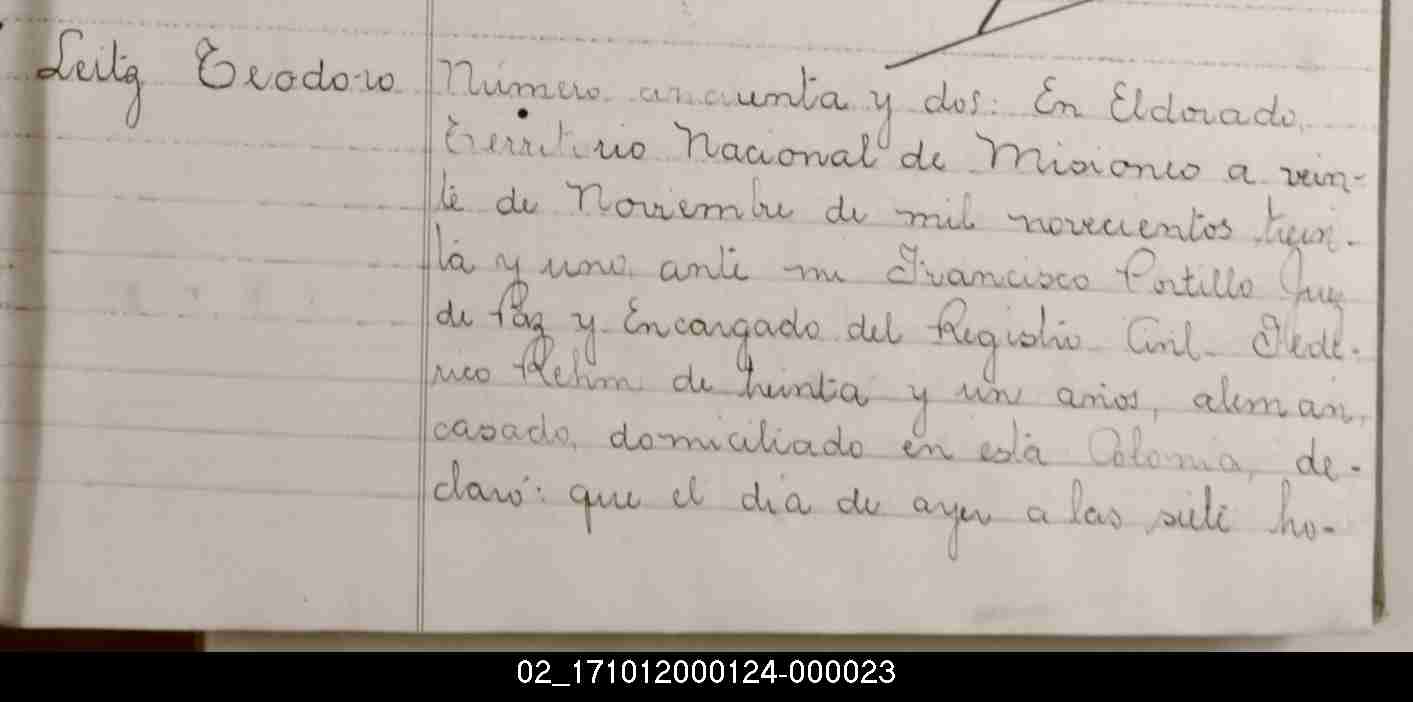 Leitz Teodoro
Número cincuenta y dos: En Eldorado,
Territorio Nacional de Misiones a vein-
te de Noviembre de mil novecientos trein-
ta y uno, ante mi Francisco Portillo Juez
de Paz y Encargado del Registro Civil Fede-
rico Rehm de treinta y un años, alemán,
casado, domiciliado en esta Colonia, de-
claró: que el dia de ayer a las siete ho-
02_171012000124-000023